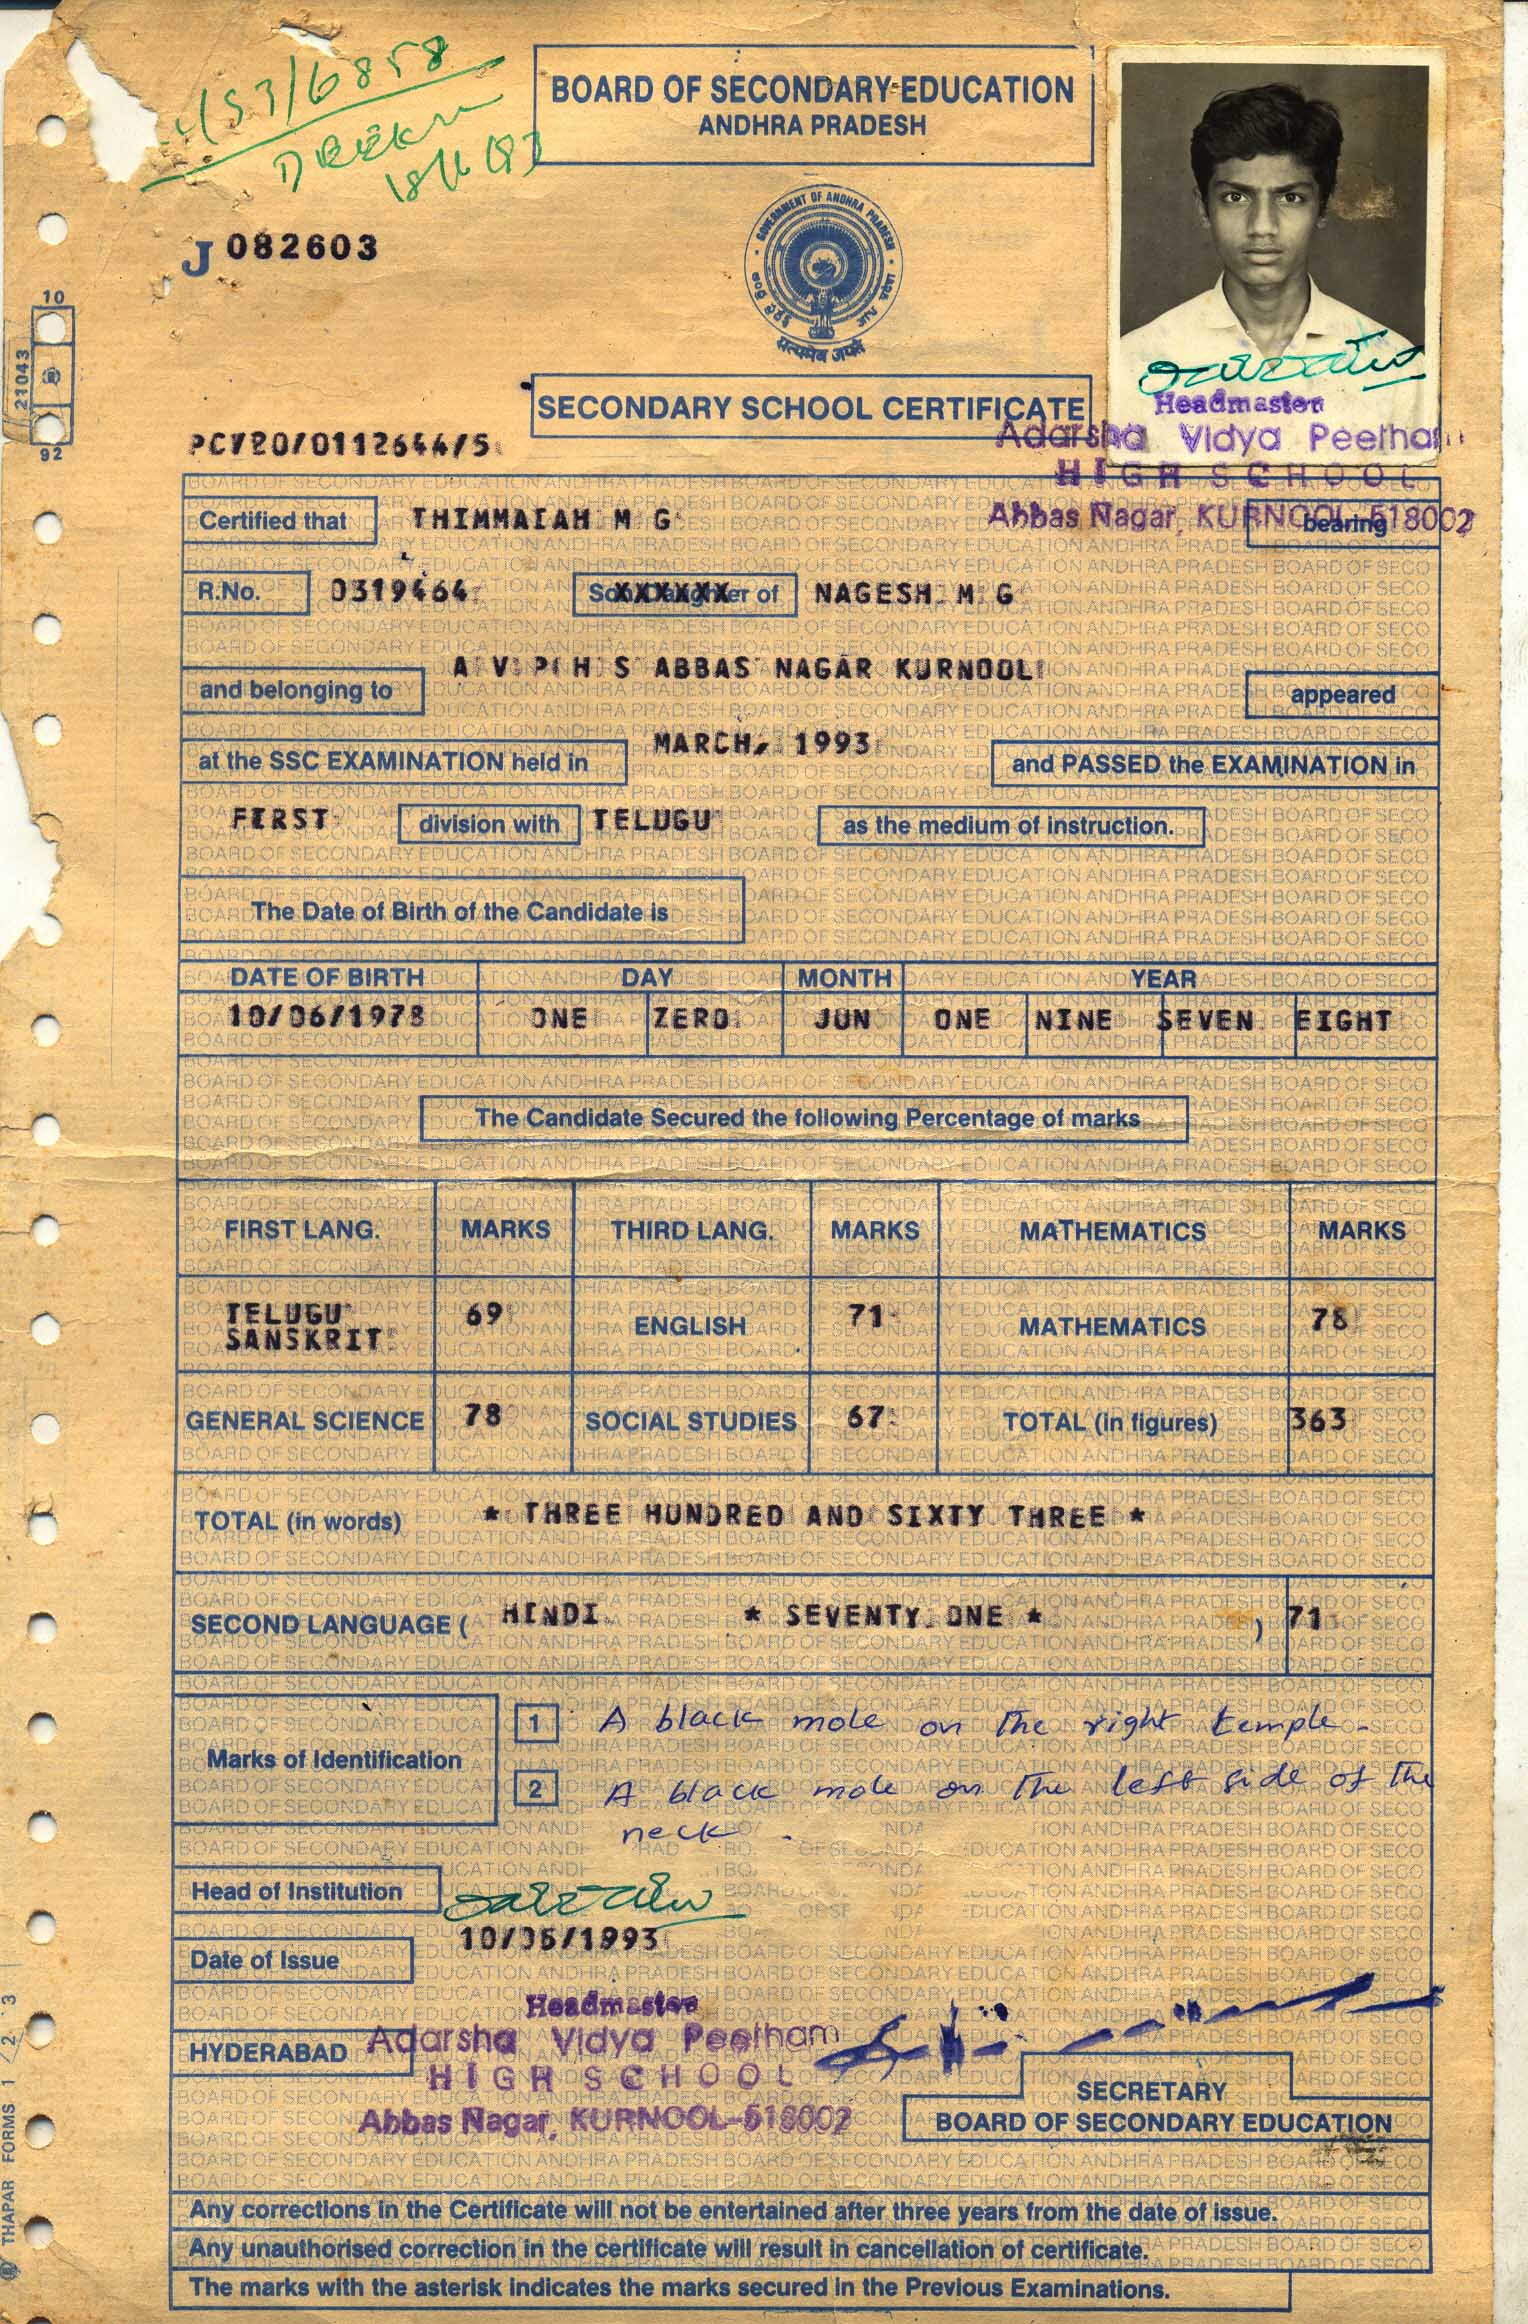 BOARD OF SECONDARY EDUCATION
ANDHRA PRADESH
153/6858
J 082603
GOVERNMENT OF ANDHRA PRADESH
सत्यमेव जयते
10
21043
92
SECONDARY SCHOOL CERTIFICATE
Headmaster
Adarsha Vidya Peetham
HIGH SCHOOL
Abbas Nagar, KURNOOL-518002
PC/20/0112644/5
Certified that THIMMAIAH M G bearing
R.No. 0319464 Son/Daughter of NAGESH M G
and belonging to A V P H S ABBAS NAGAR KURNOOL appeared
at the SSC EXAMINATION held in MARCH, 1993 and PASSED the EXAMINATION in
FIRST division with TELUGU as the medium of instruction.
The Date of Birth of the Candidate is
DATE OF BIRTH DAY MONTH YEAR
10/06/1978 ONE ZERO JUN ONE NINE SEVEN EIGHT
The Candidate Secured the following Percentage of marks
FIRST LANG. MARKS THIRD LANG. MARKS MATHEMATICS MARKS
TELUGU SANSKRIT 69 ENGLISH 71 MATHEMATICS 78
GENERAL SCIENCE 78 SOCIAL STUDIES 67 TOTAL (in figures) 363
TOTAL (in words) * THREE HUNDRED AND SIXTY THREE *
SECOND LANGUAGE ( HINDI * SEVENTY ONE * ) 71
Marks of Identification
1 A black mole on the right temple.
2 A black mole on the left side of the
neck.
Head of Institution
Date of Issue 10/06/1993
HYDERABAD
Headmaster
Adarsha Vidya Peetham
HIGH SCHOOL
Abbas Nagar, KURNOOL-518002
SECRETARY
BOARD OF SECONDARY EDUCATION
Any corrections in the Certificate will not be entertained after three years from the date of issue.
Any unauthorised correction in the certificate will result in cancellation of certificate.
The marks with the asterisk indicates the marks secured in the Previous Examinations.
THAPAR FORMS 1 / 2 3